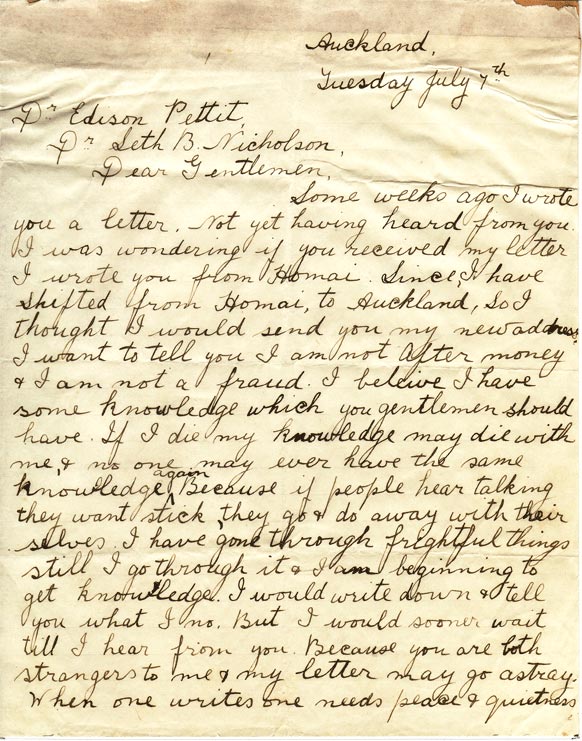 Auckland,
Tuesday July 7th
Dr Edison Pettit,
Dr Seth B. Nicholson,
Dear Gentlemen,
Some weeks ago I wrote
you a letter. Not yet having heard from you.
I was wondering if you received my letter
I wrote you from Homai. Since, I have
shifted from Homai, to Auckland, So I
thought I would send you my new address
I want to tell you I am not after money
& I am not a fraud. I beleive I have
some knowledge which you gentlemen should
have. If I die my knowledge may die with
me, & no one may ever have the same
knowledge again, Because if people hear talking
they want stick, they go & do away with their
selves. I have gone through frightful things
still I go through it & I am beginning to
get knowledge. I would write down & tell
you what I no. But I would sooner wait
till I hear from you. Because you are both
strangers to me & my letter may go astray.
When one writes one needs peace & quietness